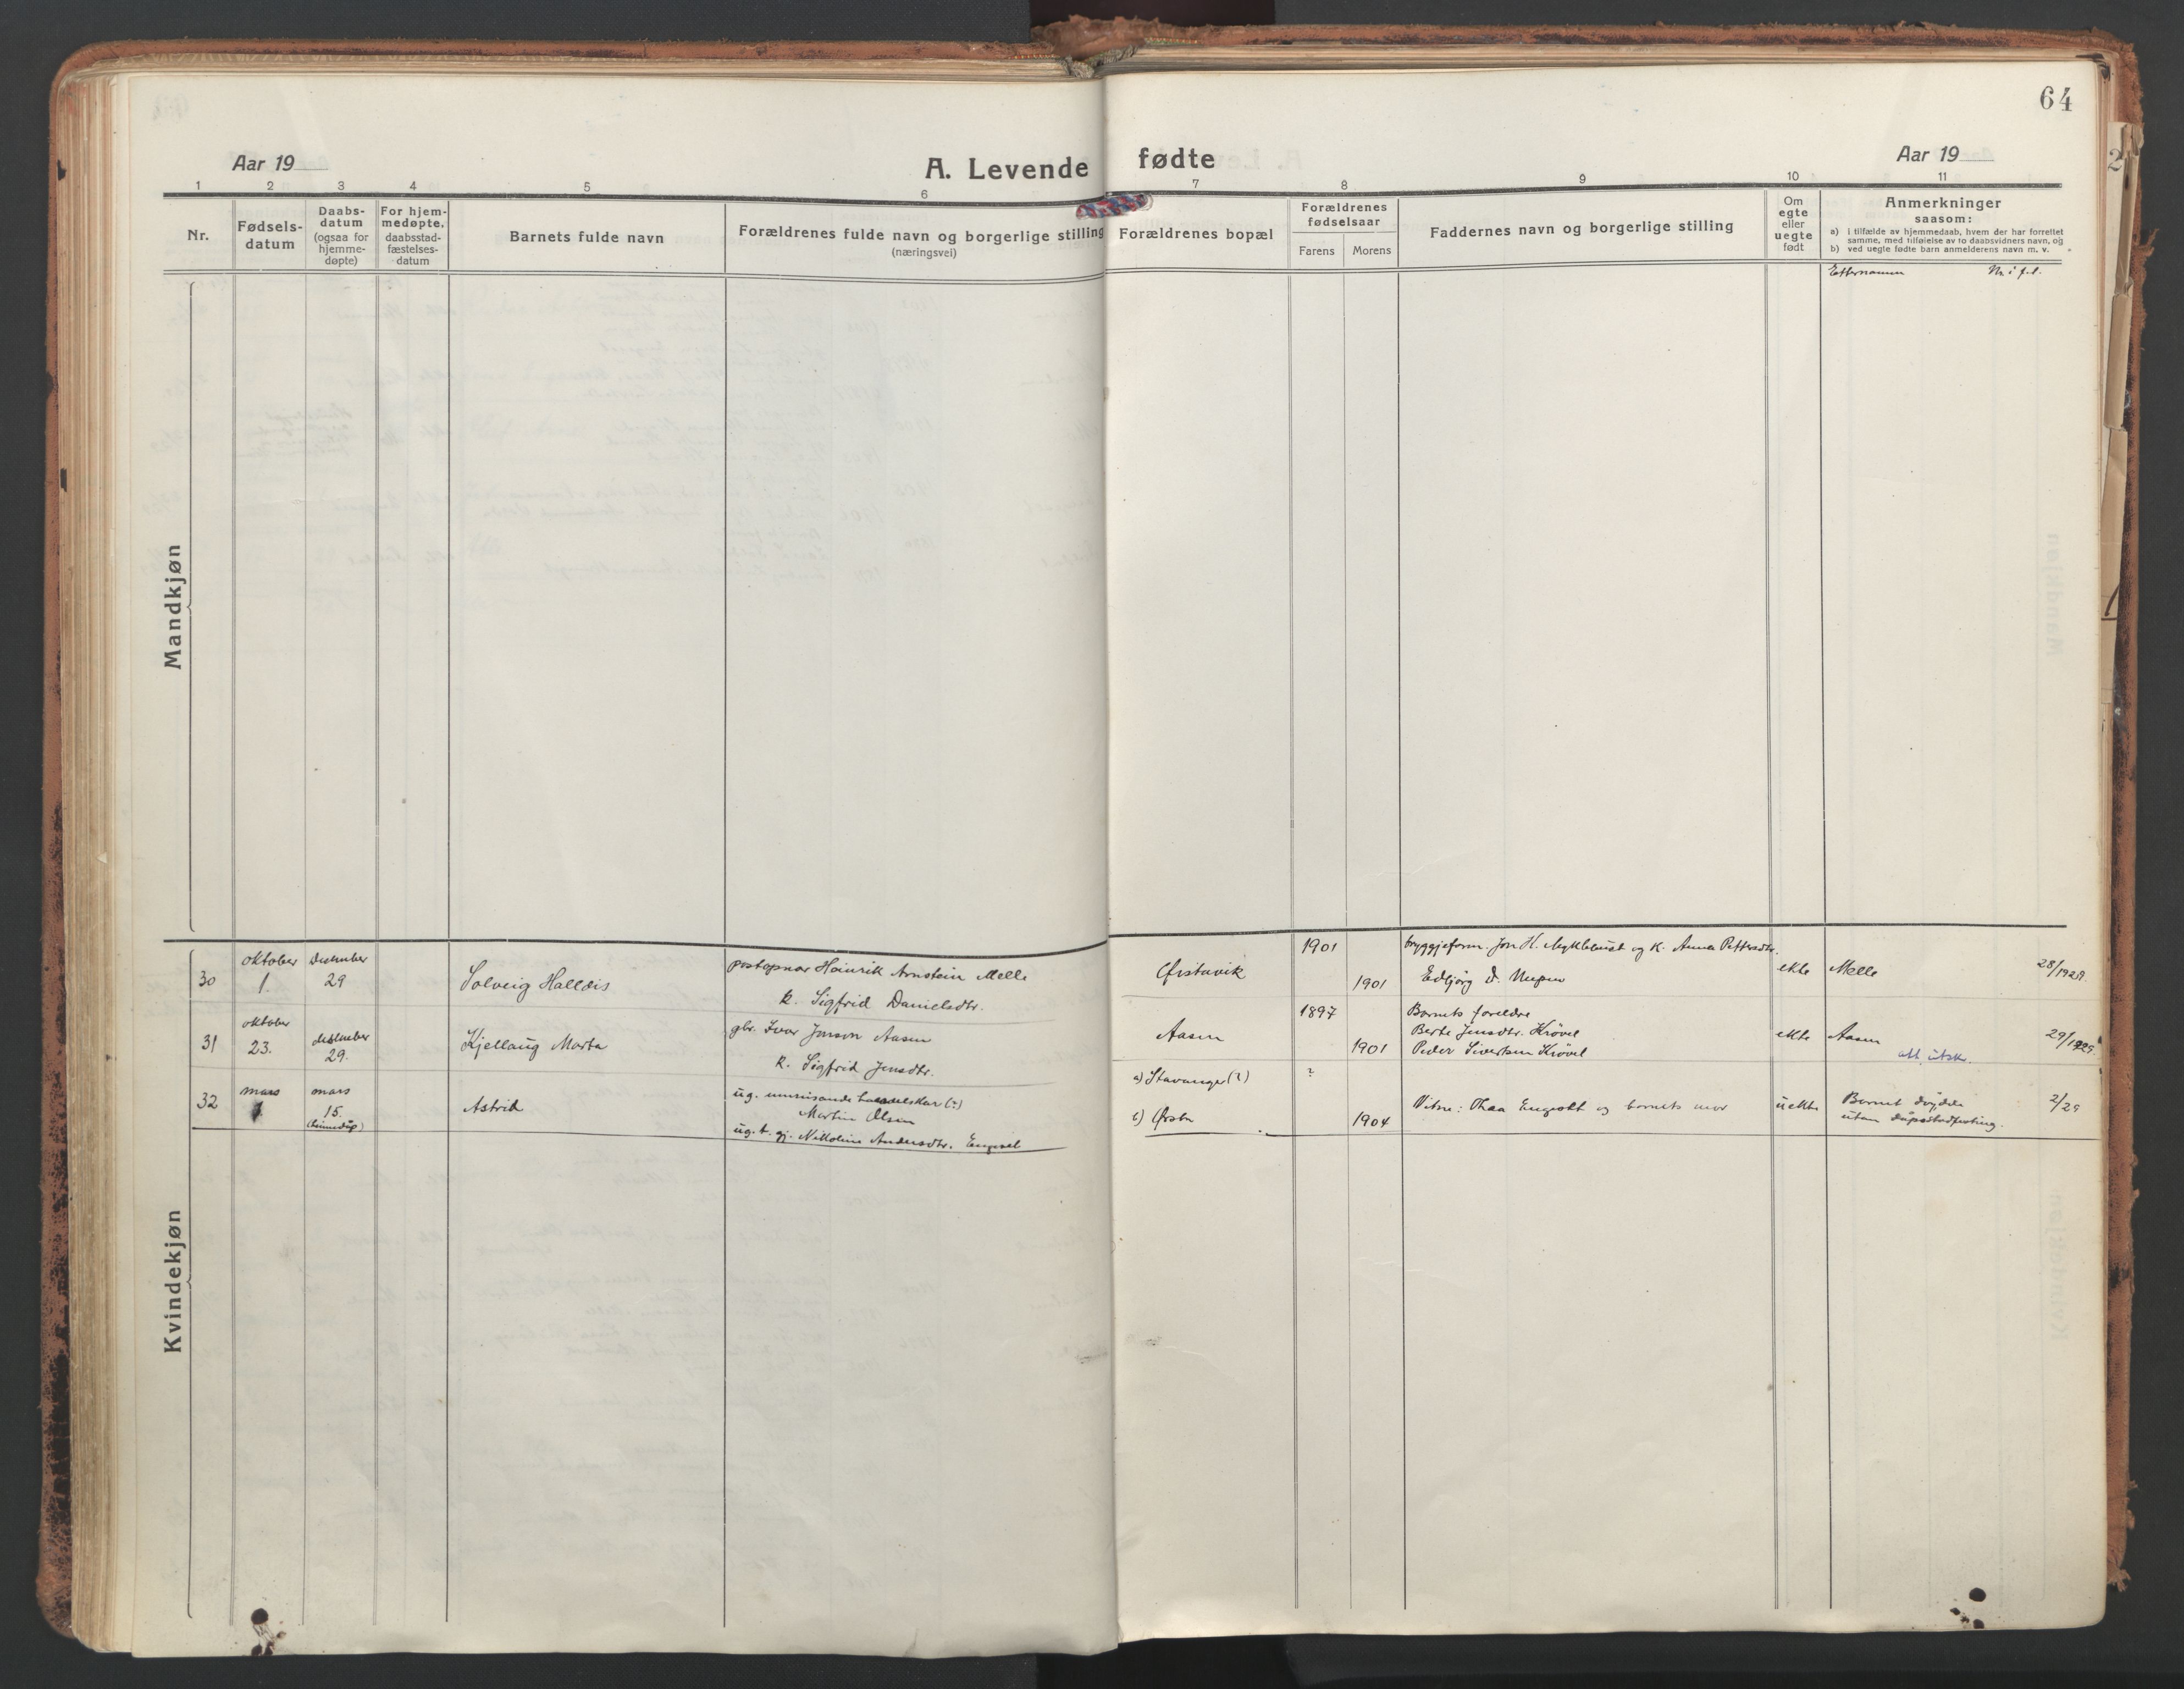 64
Aar 19
A. Levende fødte
Aar 19
1 2 3 4 5 6 7 8 9 10 11
Nr.
Fødsels-
datum
Daabs-
datum
(ogsaa for
hjemme-
døpte)
For hjem-
medøpte.
daabsstad-
fæstelses-
datum
Barnets fulde navn
Forældrenes fulde navn og borgerlige stilling
(næringsvei)
Forældrenes bopæl
Forældrenes
fødselsaar
Farens
Morens
Faddernes navn og borgerlige stilling
Om
egte
eller
uegte
født
Anmerkninger
saasom:
a) i tilfælde av hjemmedaab, hvem der har forrettet
samme, med tilføielse av to daabsvidners navn, og
b) ved uegte fødte barn anmelderens navn m. v.
Etternamn Nr. i f.l.
Mandkjøn
Kvindekjøn
30
oktober
1.
December
29
Solveig Halldis
postopnar Heinrik Arnstein Melle
k. Sigfrid Danielsdtr.
Ørstavik
1901
1901
bryggjeform. Jon H. Myklebust og k. Anna Pettersdtr.
Edbjørg D.
ekte
Melle
28/1929.
31
oktober
23.
desember
29.
Kjellaug Marta
gbr. Ivar Jonson Aasen
k. Sigfrid Jensdtr.
Aasen
1897
1901
Barnets foreldre
Berte Jensdtr. Krøvel
Peder Sivertsen Krøvel
ekte
Aasen
att. utskr.
29/1929.
32
mars
1.
mars
15.
(heimedåp)
Astrid
ug. umreisande handelskar (?)
Martin Olsen
ug. t. gj. Nikoline Andersdtr. Engeset
a) Stavanger (?)
b) Ørsta
?
1904
Vitne: Thea Engeset og barnets mor
uekte
Barnet døydde
utan dåpsstadfesting.
2/29